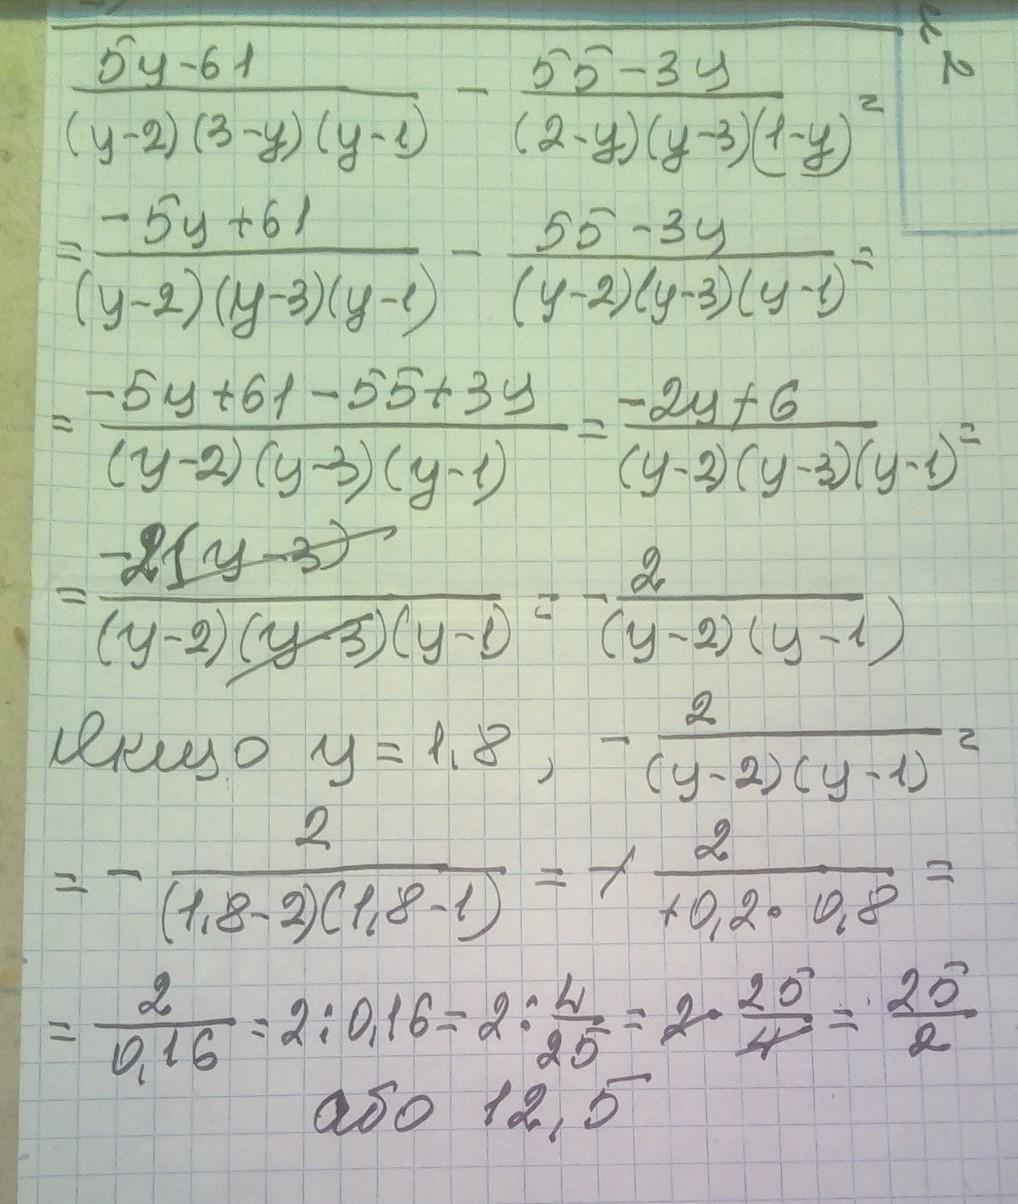 5y-61 / (y-2)(3-y)(y-1) - 55-3y / (2-y)(y-3)(1-y) =
= -5y+61 / (y-2)(y-3)(y-1) - 55-3y / (y-2)(y-3)(y-1) =
= -5y+61-55+3y / (y-2)(y-3)(y-1) = -2y+6 / (y-2)(y-3)(y-1) =
= -2(y-3) / (y-2)(y-3)(y-1) = - 2 / (y-2)(y-1)
Якщо y=1,8, - 2 / (y-2)(y-1) =
= - 2 / (1,8-2)(1,8-1) = + 2 / +0,2·0,8 =
= 2 / 0,16 = 2:0,16 = 2: 4/25 = 2· 25/4 = 25/2
або 12,5